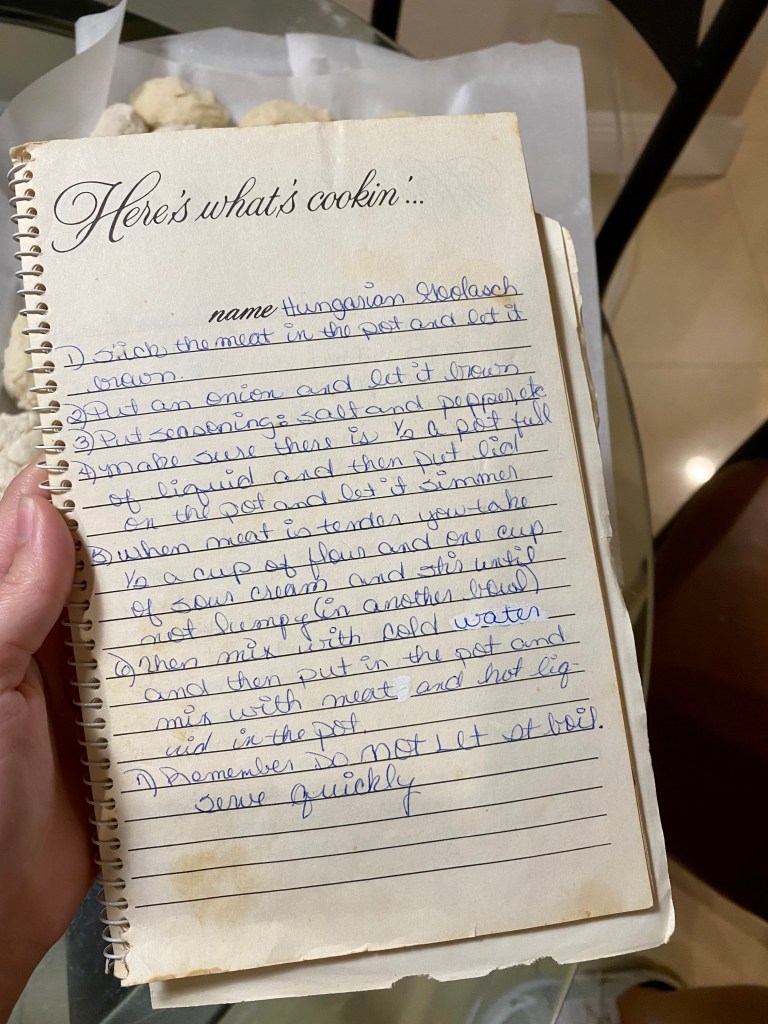 Here's what's cookin'...
name Hungarian Goolasch
1) Stick the meat in the pot and let it
brown.
2) Put an onion and let it brown
3) Put seasoning: salt and pepper, etc
4) make sure there is ½ a pot full
of liquid and then put lid
on the pot and let it simmer
5) when meat is tender you take
½ a cup of flour and one cup
of sour cream and stir until
not lumpy (in another bowl)
6) Then mix with cold water
and then put in the pot and
mix with meat and hot liq-
uid in the pot.
7) Remember Do not Let it boil.
serve quickly